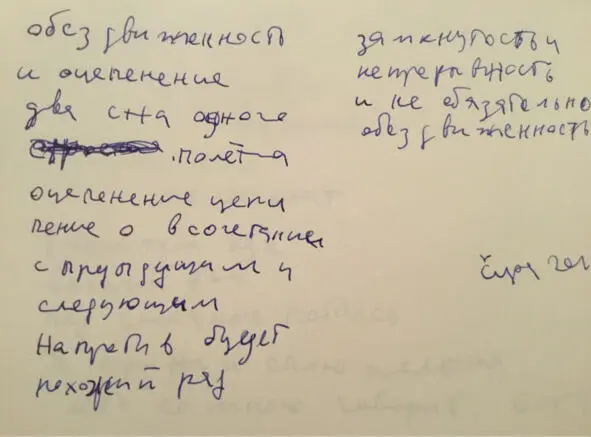 обездвиженность
и оцепенение
два сна одного
полёта
оцепенение цепи
пение о в сочетании
с предыдущим и
следующим
напротив будет
похожий раз
замкнутость и
непрерывность
и не обязательно
обездвиженность